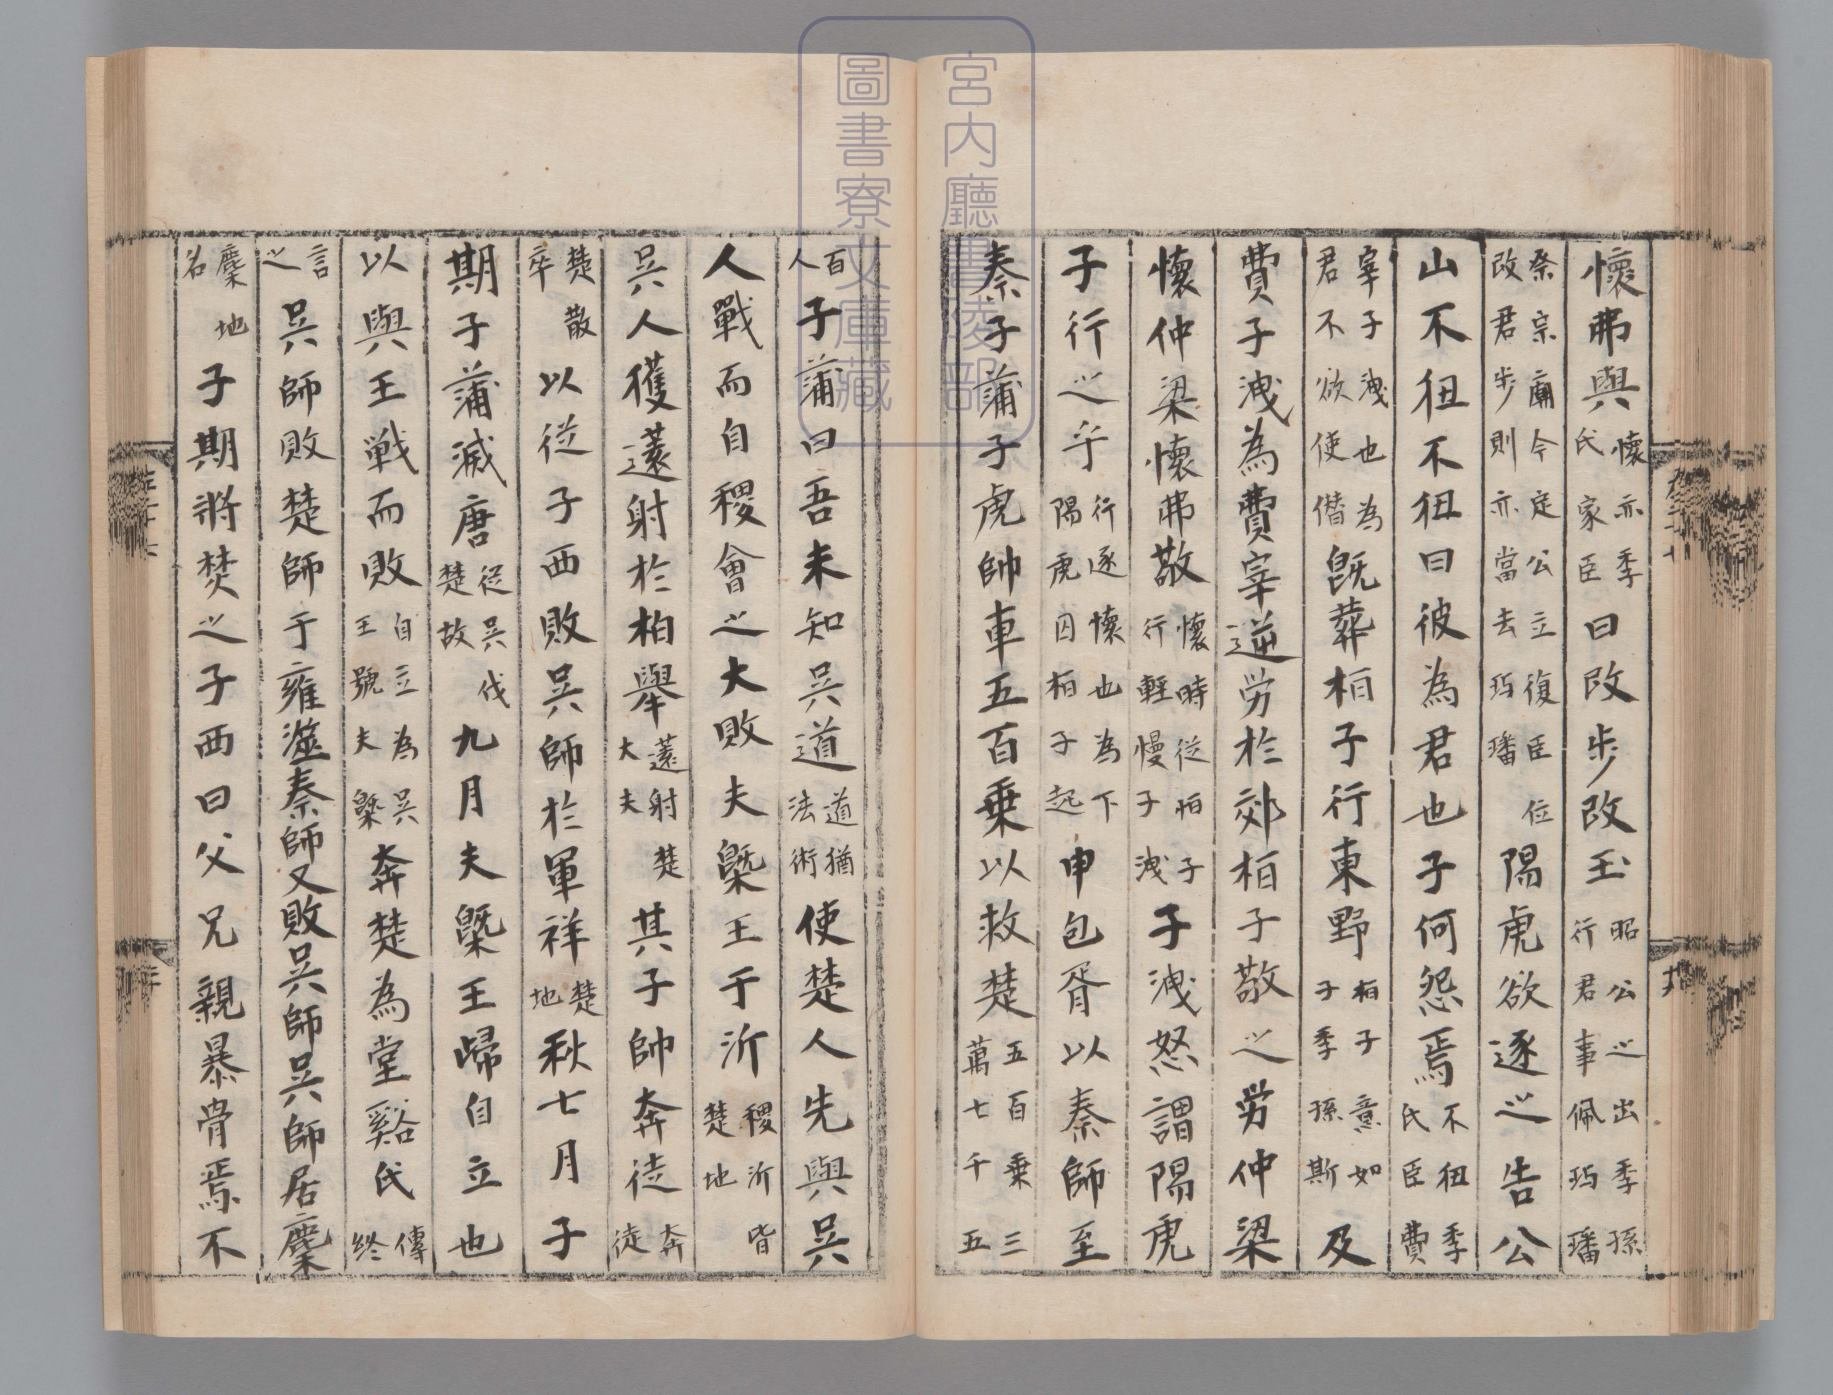 懷弗與懷亦季氏家臣曰改步改玉昭公之出季孫行君事佩玙璠
祭宗廟今定公立復臣位改君步則亦當去玙璠陽虎欲逐之告公
山不狃不狃曰彼為君也子何怨焉不狃季氏臣費
宰子洩也為君不欲使僣既葬栢子行東野栢子意如子季孫斯及
費子洩為費宰逆労於郊栢子敬之労仲梁
懷仲梁懷弗敬懷時從栢子行輕慢子洩子洩怒謂陽虎
子行之乎行逐懷也為下陽虎囚栢子起申包胥以秦師至
秦子蒲子虎帥車五百乗以救楚五百乗三萬七千五
百人子蒲曰吾未知吳道道猶法術使楚人先與吳
人戰而自稷會之大敗夫槩王于沂稷沂皆楚地
吳人獲薳射於柏舉薳射楚大夫其子帥奔徒奔徒
楚散卒以從子西敗吳師於軍祥楚地秋七月子
期子蒲滅唐從吳伐楚故九月夫槩王歸自立也
以與王戰而敗自立為吳王號夫槩奔楚為堂谿氏傳終
言之吳師敗楚師于雍澨秦師又敗吳師吳師居麇
麇地名子期將焚之子西曰父兄親暴骨焉不
宮内廳書陵部
圖書寮文庫藏